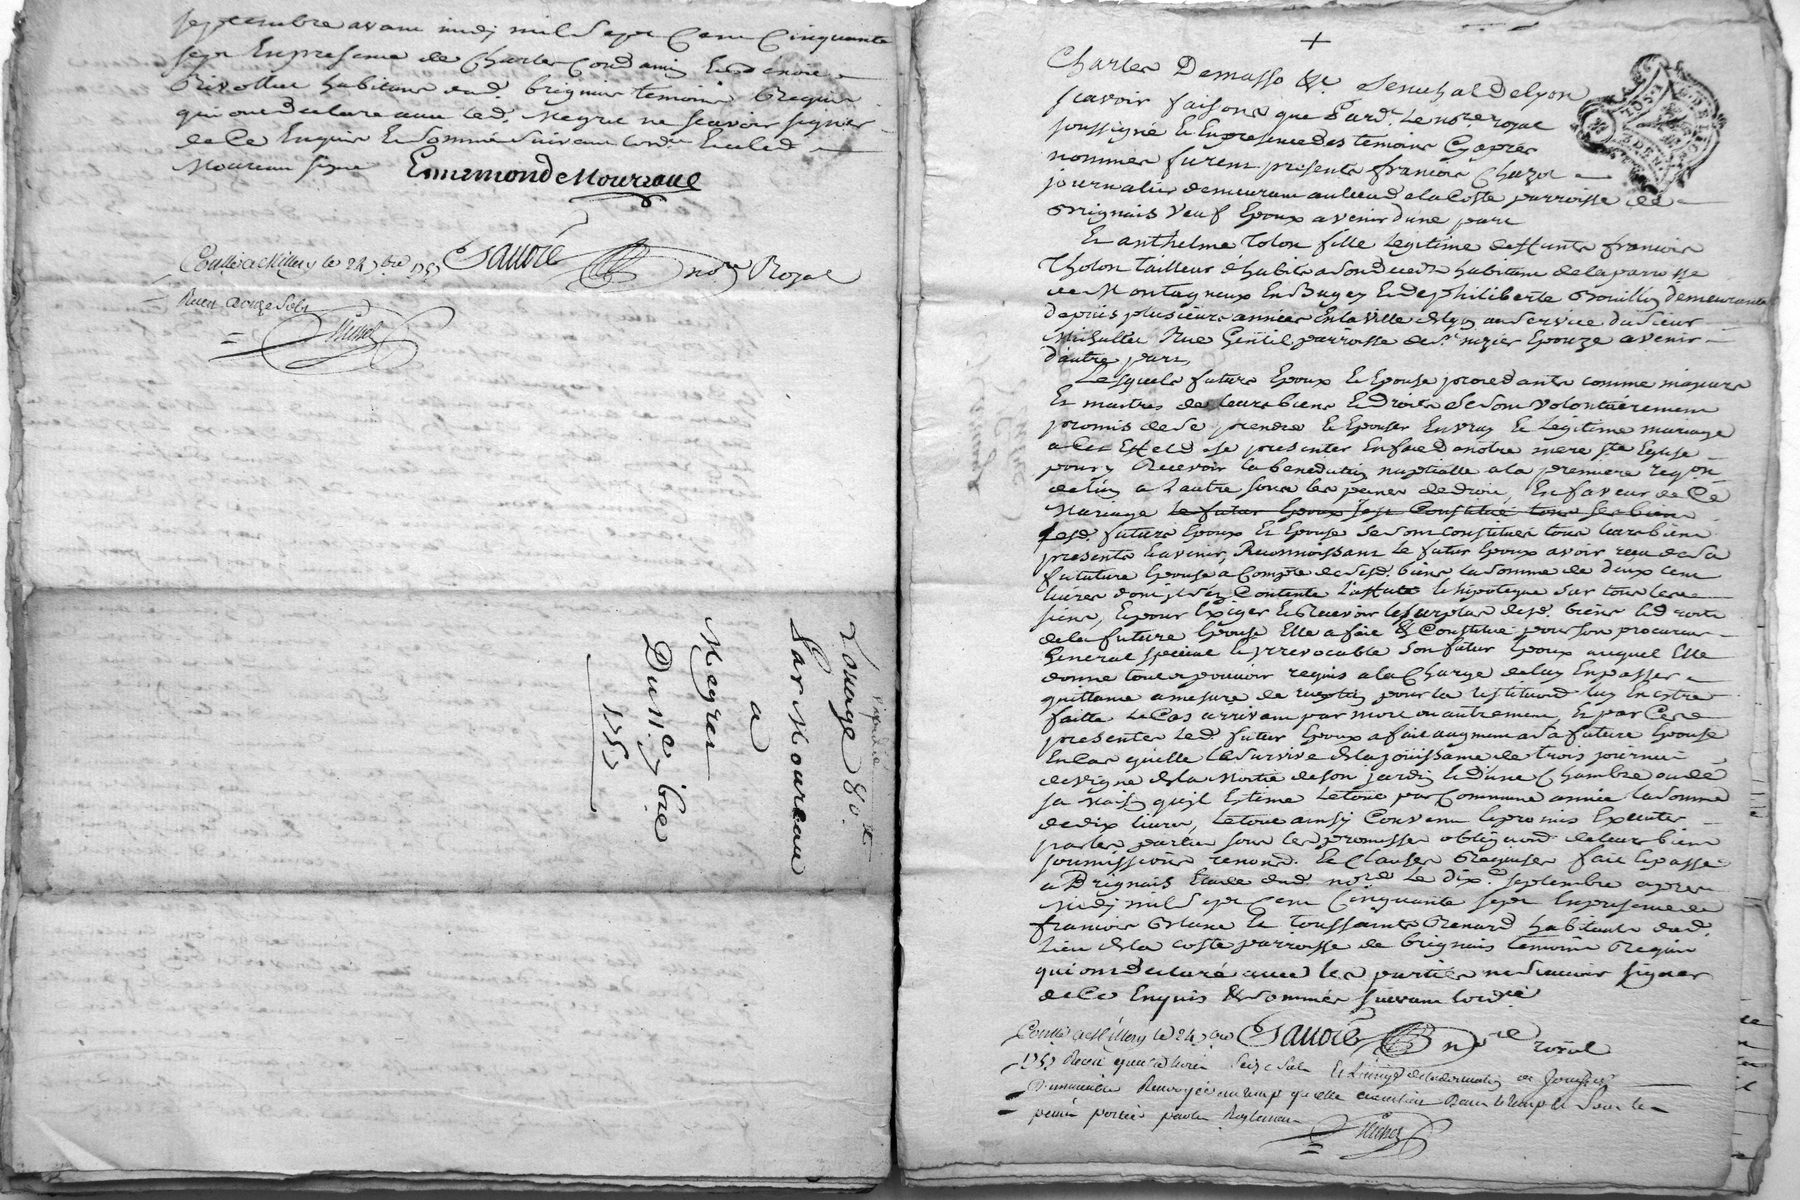 septembre avant midy mil sept Cent Cinquante
sept En presence de Charles
Rivollier habitans dud. brignais temoins Requis
qui ont declaré avec led. Megret ne scavoir signer
de ce Enquis Et sommé suivant lord.ce Et led.
Moureau signé Ennemond Moureaud
Collé a Millery le 24 7bre 1757 Sauvré no.re Royal
Receu douze sols
Michel
Expedié
Louage 80.tt
Par Moureau
a
Megret
Du 11e 7bre
1757
+
Charles Demasso &c. Senechal de Lyon
scavoir faisons que Pard.t Le no.re royal
soussigné Et En presence des temoins Cy apres
nommés furent presents francois Chazot
journalier demeurant au lieu de la Coste parroisse de
Brignais veuf Epoux a venir d'une part
Et anthelme Tolon fille Legitime de deffunts francois
Tholon tailleur d'habits a son deceds habitant de la parroisse
de Montagneux En Bugey Et de philiberte demeurante
depuis plusieurs années En la ville de Lyon au service du sieur
Rue Gentil parroisse de St. nizier Epouze a venir
d'autre part,
Lesquels futurs Epoux Et Epouse procedants comme majeurs
Et maitres de leurs biens Et Droits se sont volontairement
promis de se prendre Et Epouser En vray Et Legitime mariage
a cet Effet de se presenter En face de notre mere Ste Eglise
pour y Recevoir la benediction nuptialle a la premiere req.on
de l'un a l'autre sous les peines de droit, En faveur de Ce
Mariage Le futur Epoux s'est Constitué tous ses biens
Lesd. futurs Epoux Et Epouse se sont constitués tous leurs biens
presents Et avenir, Reconnoissant Le futur Epoux avoir reçu de sa
fututure Epouse a Compte de sesd. biens la somme de deux cent
livres dont il s'est Contenté L'assure Et hipoteque sur tous les
siens, Et pour Exiger Et Recevoir le surplus desd. biens Et droits
de la future Epouse Elle a fait Et Constitué pour son procureur
General special Et irrevocable son futur Epoux auquel Elle
donne tout pouvoir requis a la Charge de luy En passer
quittance a mesure de reception pour la restitution luy En estre
faitte Le Cas arrivant par mort ou autrement, Et par Ces
presentes Led. futur Epoux a fait augment a sa future Epouse
En Cas qu'elle Le survive de la jouissance de trois journées
de vigne de la Moitié de son jardin Et d'une Chambre de
sa maison qu'il Estime Le tout par Commune année la somme
de dix livres, Le tout ainsy Convenu Et promis Executer
par les parties sous les promesses oblig.ons de leurs biens
soumissions renonc. Et Clauses Requises fait Et passé
a Brignais Etude dud. no.re Le dix.e septembre apres
Midy mil sept Cent Cinquante sept En presence de
francois Blanc Et toussaints Renard habitants dud.
Lieu de la Coste parroisse de brignais temoins Requis
qui ont declaré avec les parties ne scavoir signer
de Ce Enquis Et sommés suivant l'ord.ce
Collé a Millery le 24 7bre Sauvré no.re royal
1757 Receu quatre livres Seize sols
Renvoyée au temp
peines portées par le Reglement
Michel